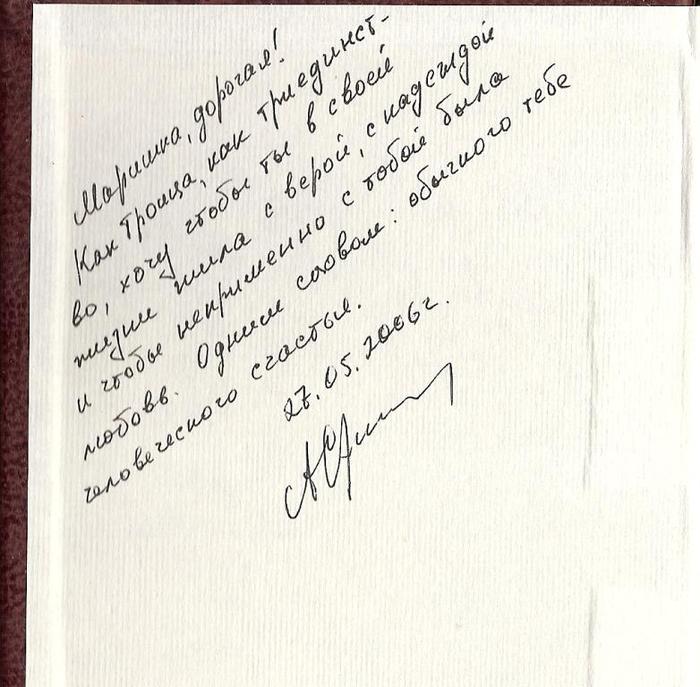 Маришка, дорогая!
Как троица, как триединст-
во, хочу чтобы ты в своей
жизни жила с верой, с надеждой
и чтобы неприменно с тобой была
любовь. Одним словом: обычного тебе
человеческого счастья.
27.05.2006г.